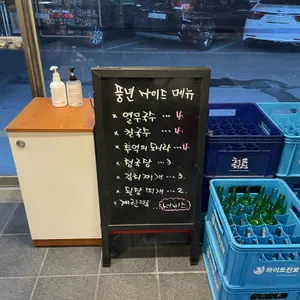 풍년 나이스 메뉴
× 열무국수 ... 4.
× 칼국수 ... 4.
× 추억의 도시락 ... 4
× 청국장 ... 3.
× 김치찌개 ... 3
× 된장찌개 ... 2.
× 계란찜
하이트진로